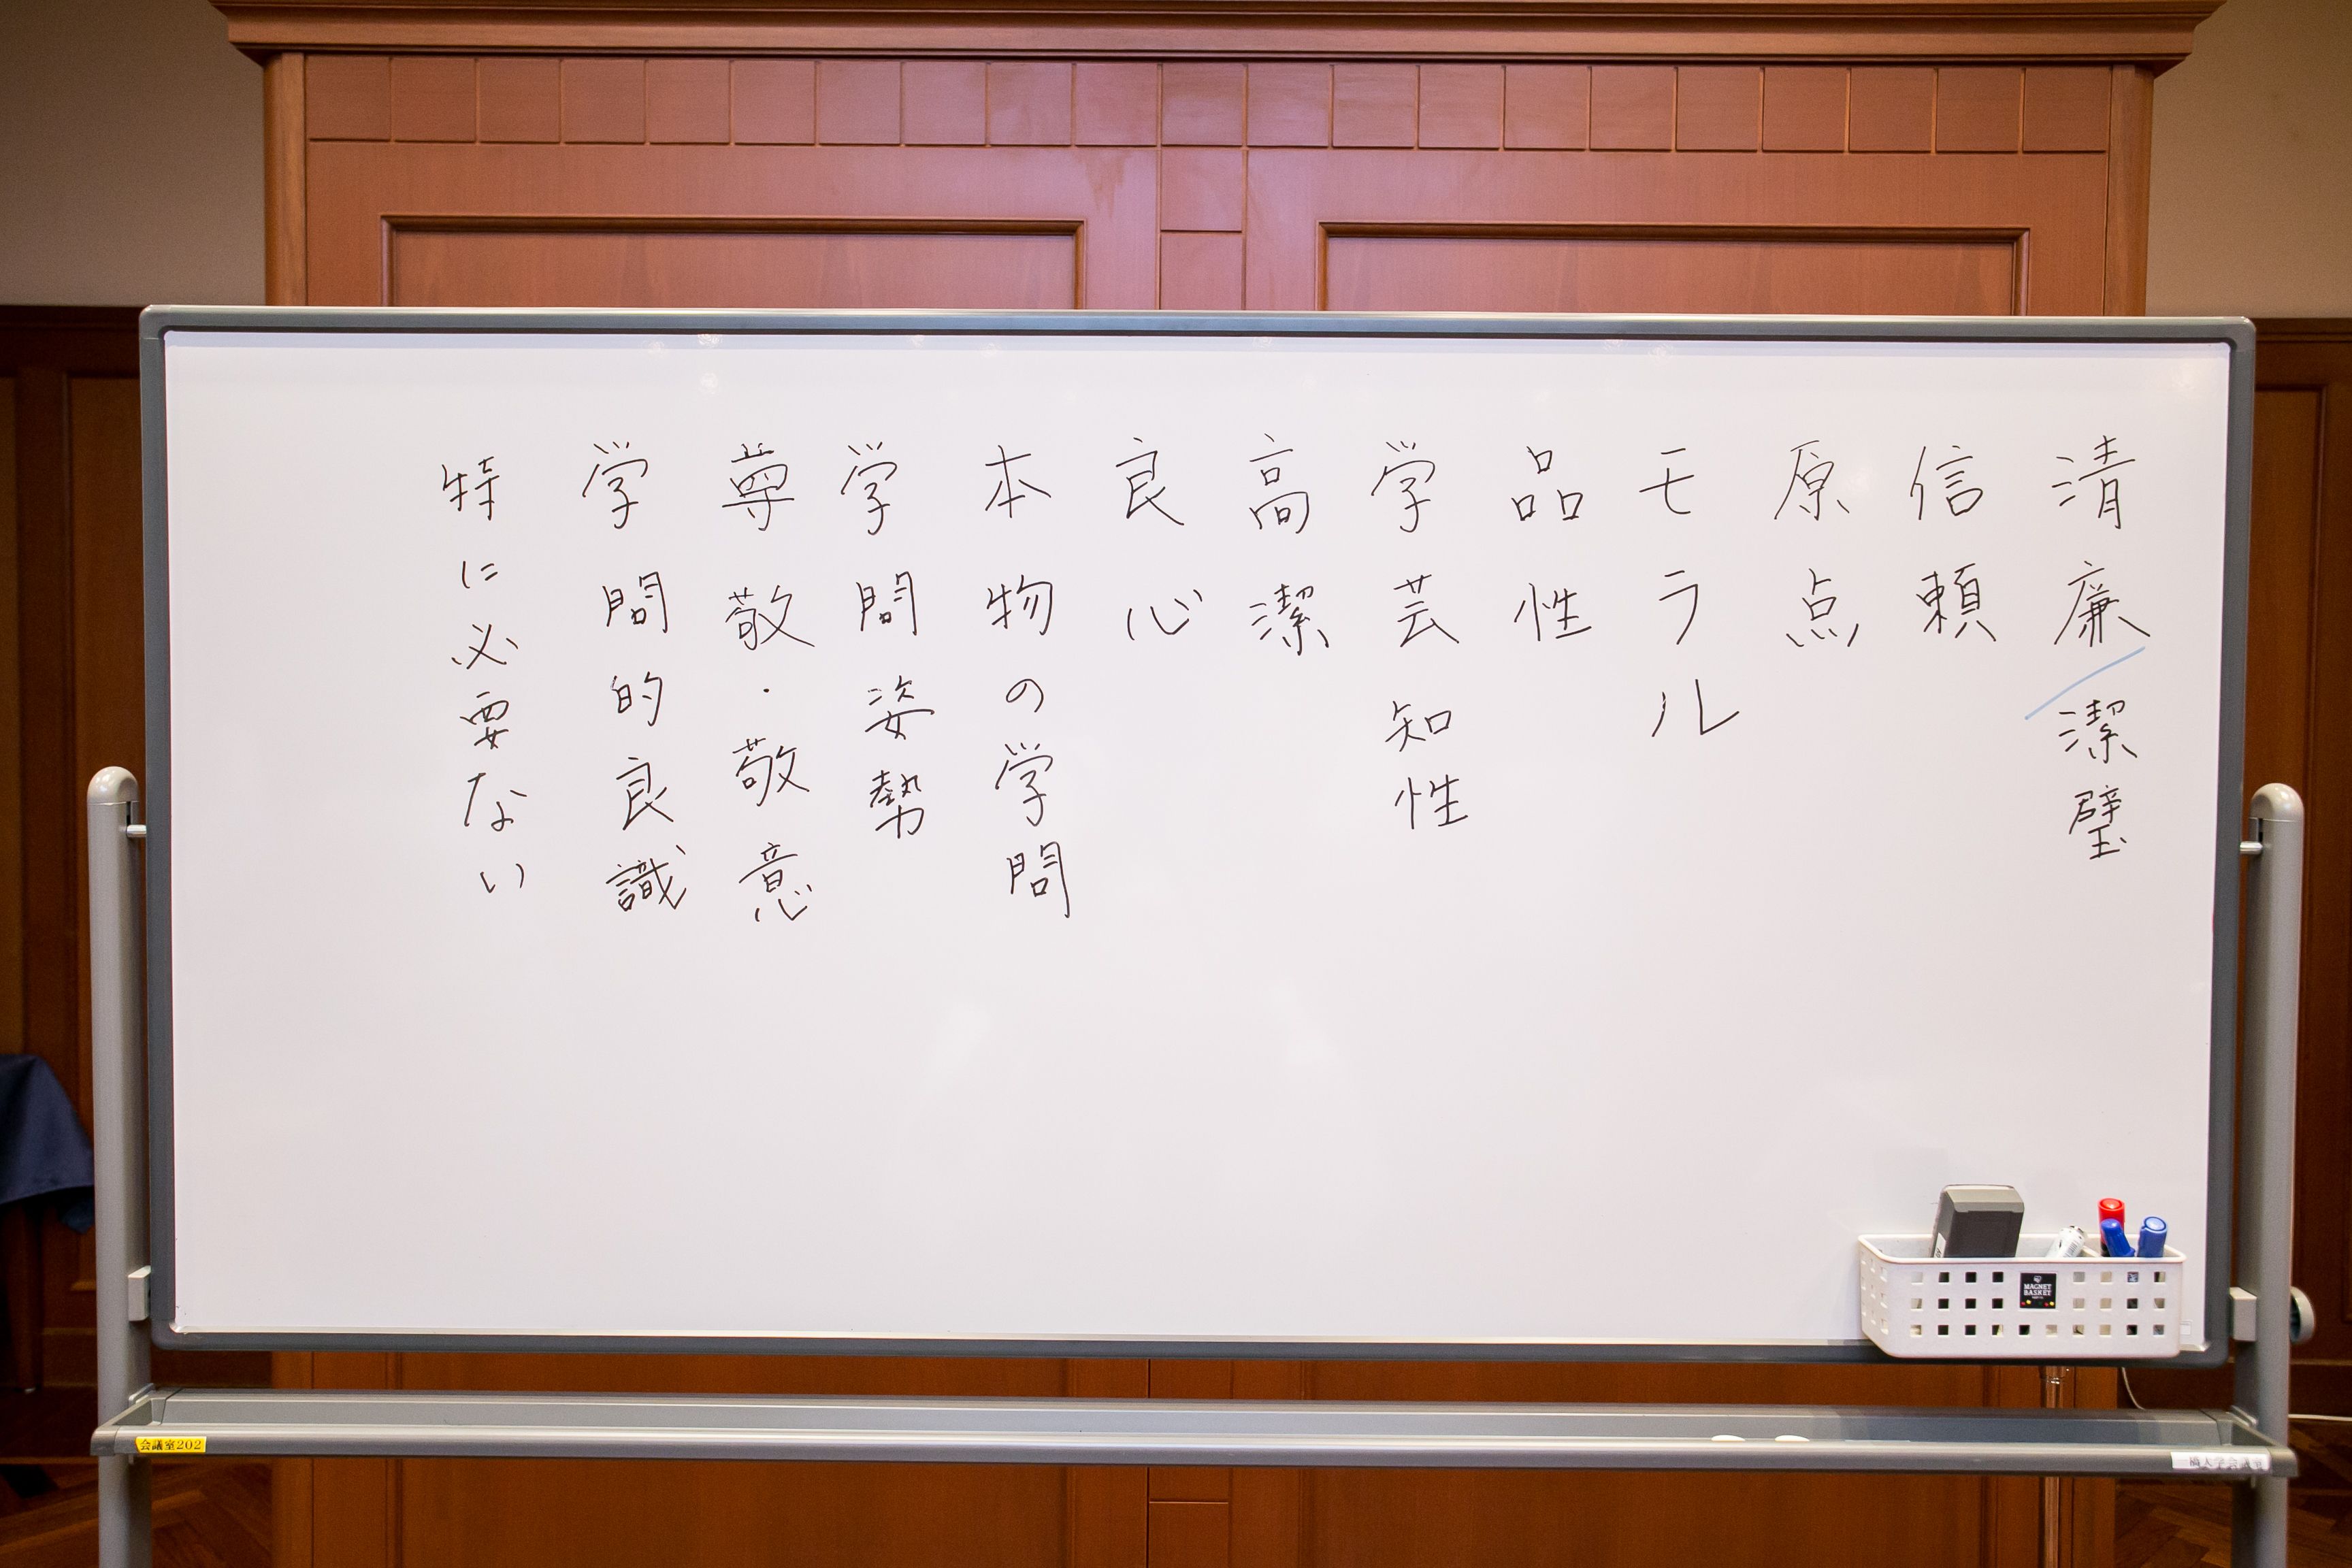 清廉潔璧
信頼
原点
モラル
品性
学芸知性
高潔
良心
本物の学問
学問姿勢
尊敬・敬意
学問的良識
特に必要ない
MAGNET
BASKET
会議室202